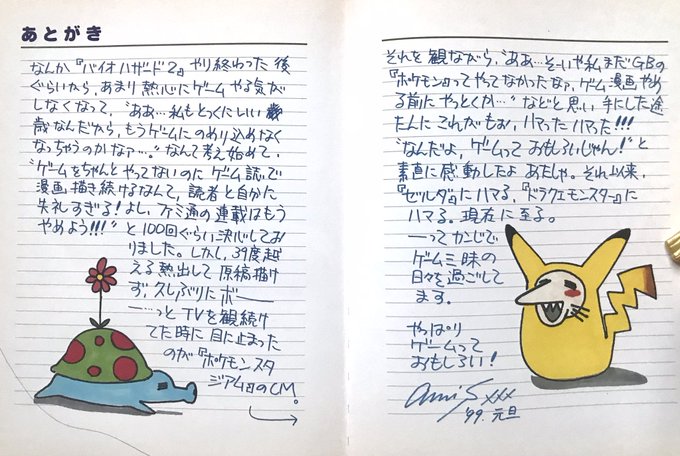 あとがき
なんか『バイオハザード2』やり終わった後
ぐらいから、あまり熱心にゲームやる気が
しなくなって、“ああ…私もとっくにいい歳
歳なんだから、もうゲームにのめり込めなく
なっちゃうのかなァ…。”なんて考え始めて、
“ゲームをちゃんとやってないのにゲーム誌で
漫画描き続けるなんて、読者と自分に
失礼すぎる!よし、ファミ通の連載はもう
やめよう!!!”と100回ぐらい決心してお
りました。しかし、39度越
える熱出して原稿描け
ず、久しぶりにボー
…っとTVを観続け
てた時に目に止まった
のが『ポケモンスタ
ジアム』のCM。
それを観ながら、“ああ…そーいや私まだGBの
『ポケモン』ってやってなかったなァ、ゲーム漫画やめ
る前にやっとくか…”などと思い手にした途
たんにこれがもぉ、ハマったハマった!!!
“なんだよ、ゲームっておもしろいじゃん!”と
素直に感動したよあたしゃ。それ以来、
『ゼルダ』にハマる、『ドラクエモンスター』に
ハマる。現在に至る。
ーってかんじで
ゲーム三昧の
日々を過ごして
ます。
やっぱり
ゲームって
おもしろい!
'99.元旦